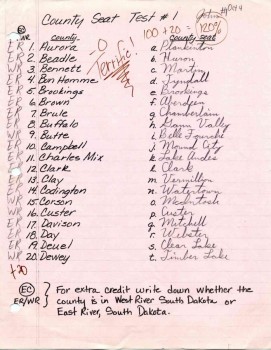 County Seat Test #1
100 + 20 = 120%
EC
WR county county seat
-0
Terrific!
ER 1. Aurora a. Plankinton
ER 2. Beadle b. Huron
WR 3. Bennett c. Martin
ER 4. Bon Homme d. Tyndall
ER 5. Brookings e. Brookings
ER 6. Brown f. Aberdeen
ER 7. Brule g. Chamberlain
ER 8. Buffalo h. Gann Valley
WR 9. Butte i. Belle Fourche
ER 10. Campbell j. Mound City
ER 11. Charles Mix k. Lake Andes
ER 12. Clark l. Clark
ER 13. Clay m. Vermillion
ER 14. Codington n. Watertown
WR 15. Corson o. McIntosh
WR 16. Custer p. Custer
ER 17. Davison q. Mitchell
ER 18. Day r. Webster
ER 19. Deuel s. Clear Lake
WR 20. Dewey t. Timber Lake
+20
EC For extra credit write down whether the
ER/WR county is in West River South Dakota or
East River, South Dakota.